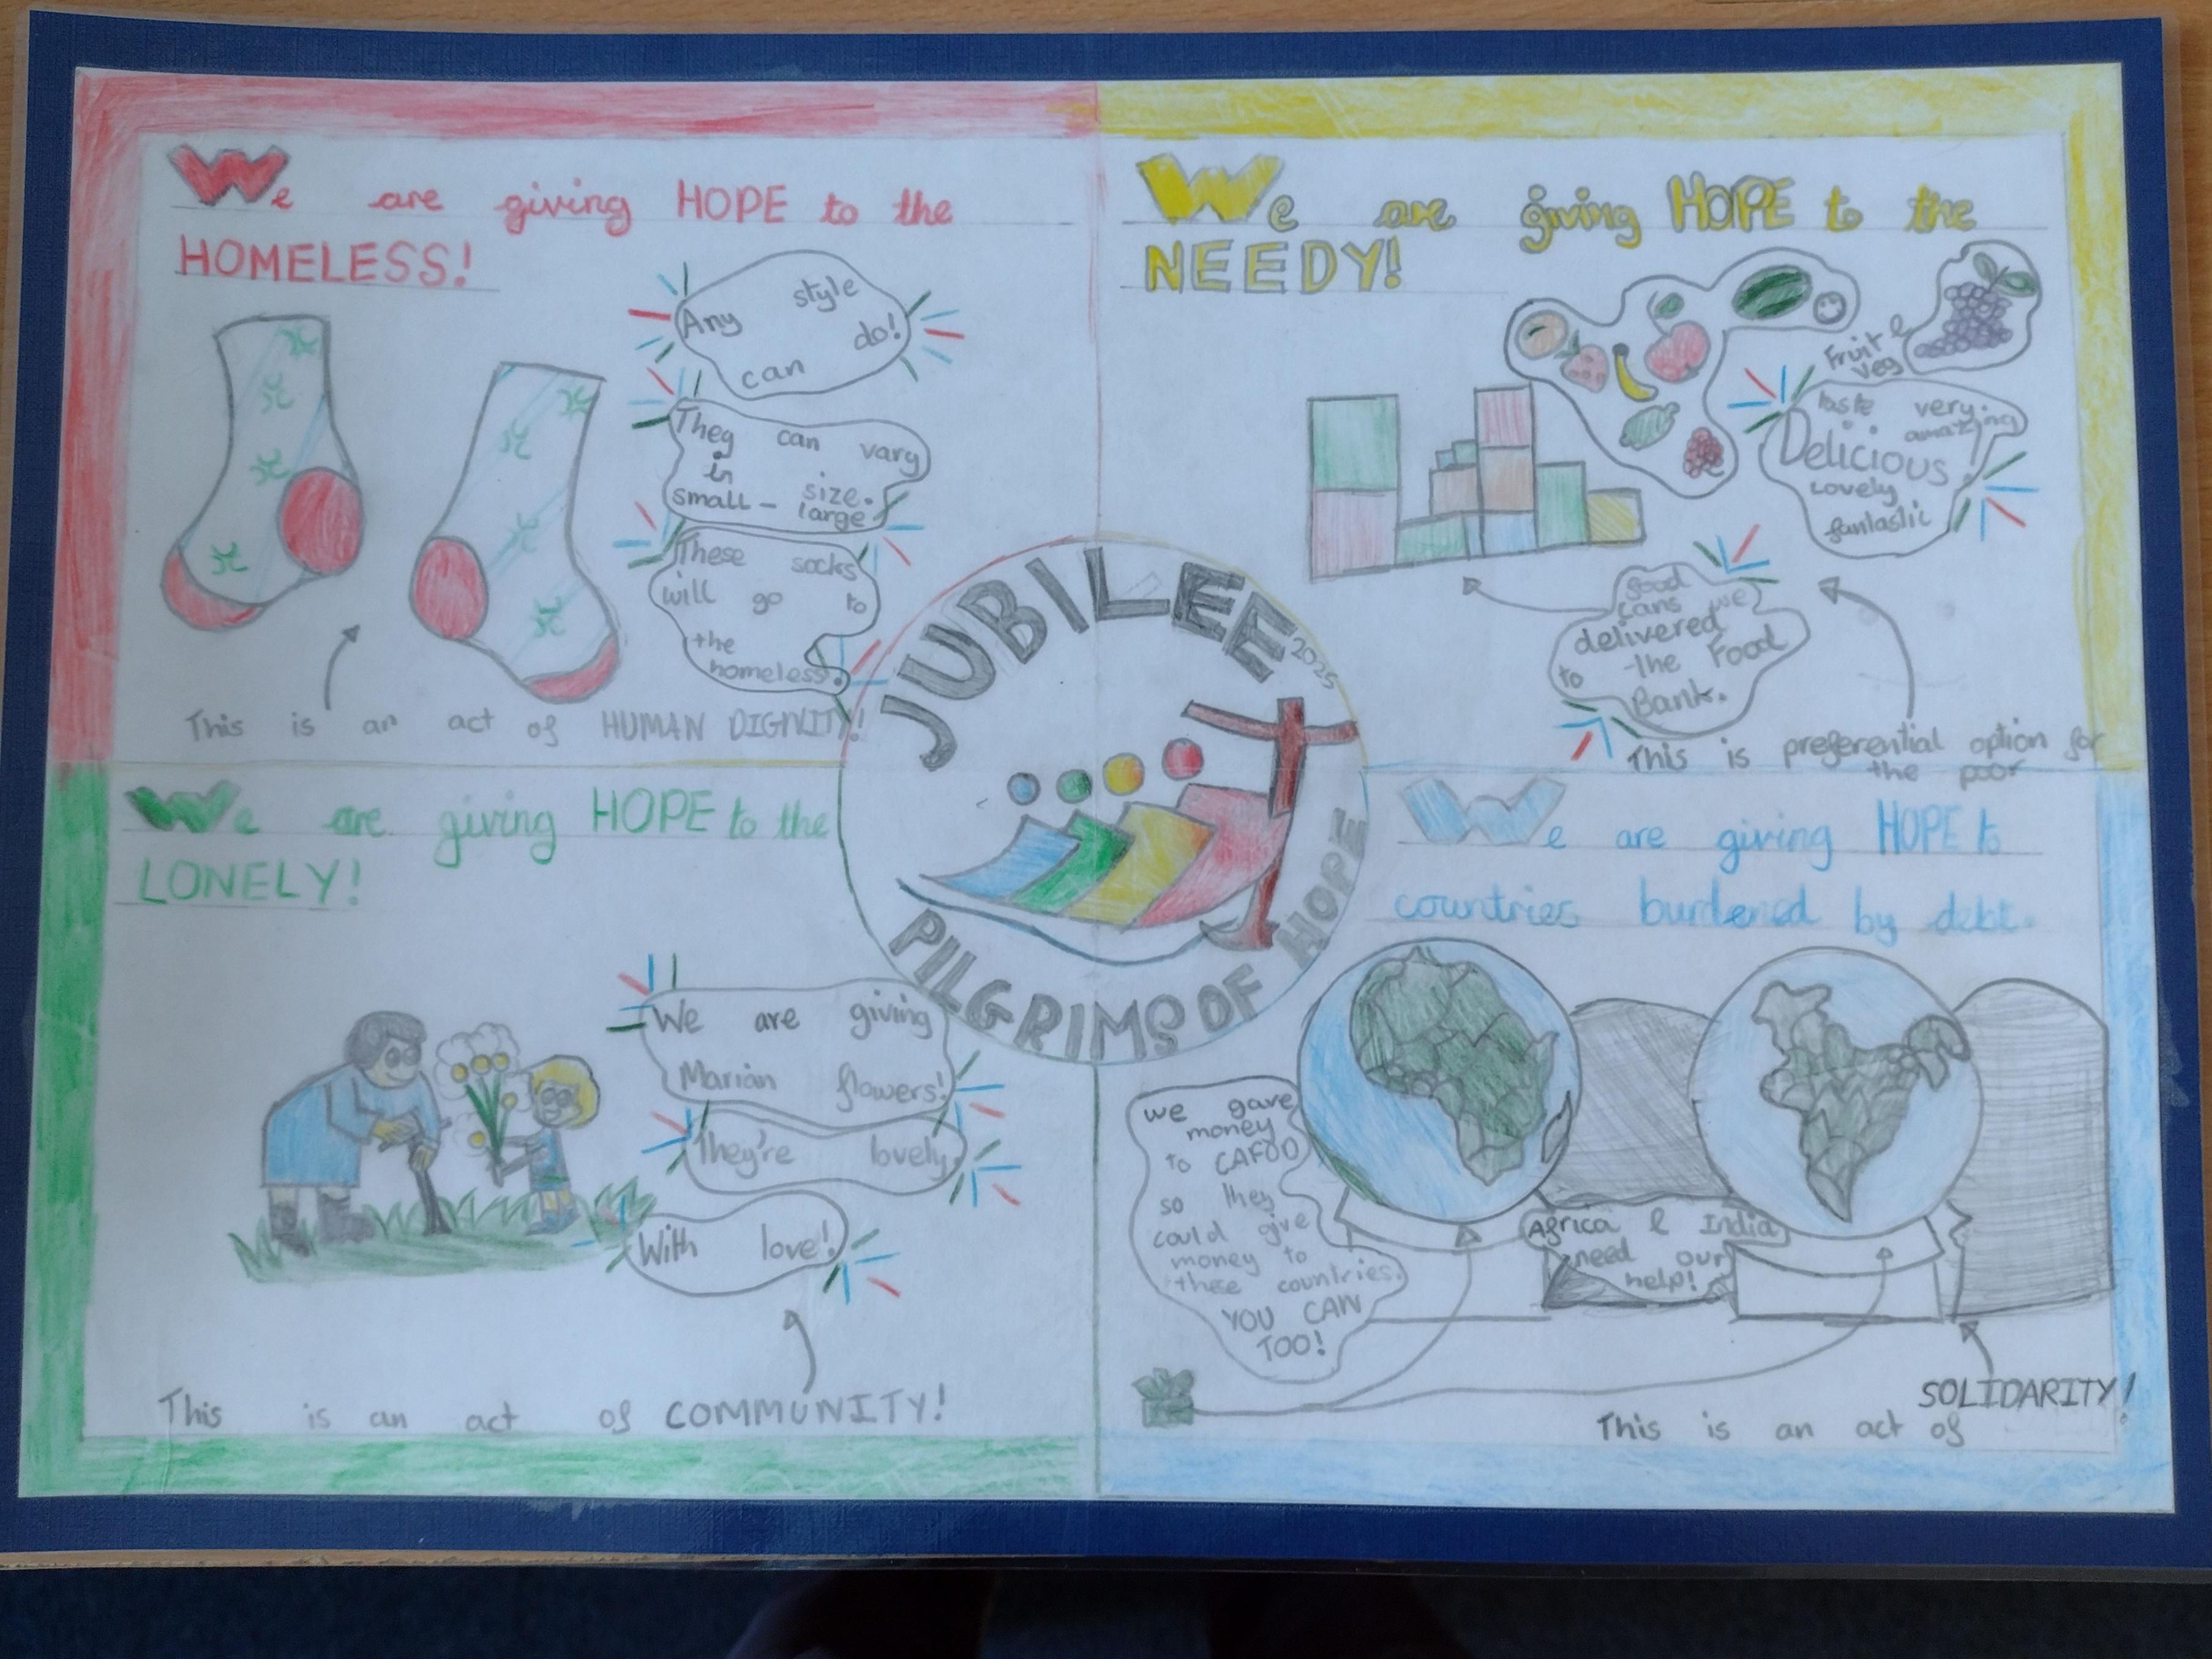 We are giving HOPE to the
HOMELESS!
Any style
can do!
They can vary
in size.
small - large
These socks
will go to
the
homeless.
This is an act of HUMAN DIGNITY!
We are giving HOPE to the
NEEDY!
Fruit &
Veg
taste very
amazing
Delicious!
Lovely
fantastic
food
cans we
delivered
to the Food
Bank.
This is preferential option for
the poor
JUBILEE 2025
PILGRIMS OF HOPE
We are giving HOPE to the
LONELY!
We are giving
Marian flowers!
They're lovely.
With love!
This is an act of COMMUNITY!
We are giving HOPE to
countries burdened by debt.
we gave
money
to CAFOD
so they
could give
money to
these countries.
YOU CAN
TOO!
Africa & India
need our
help!
SOLIDARITY!
This is an act of